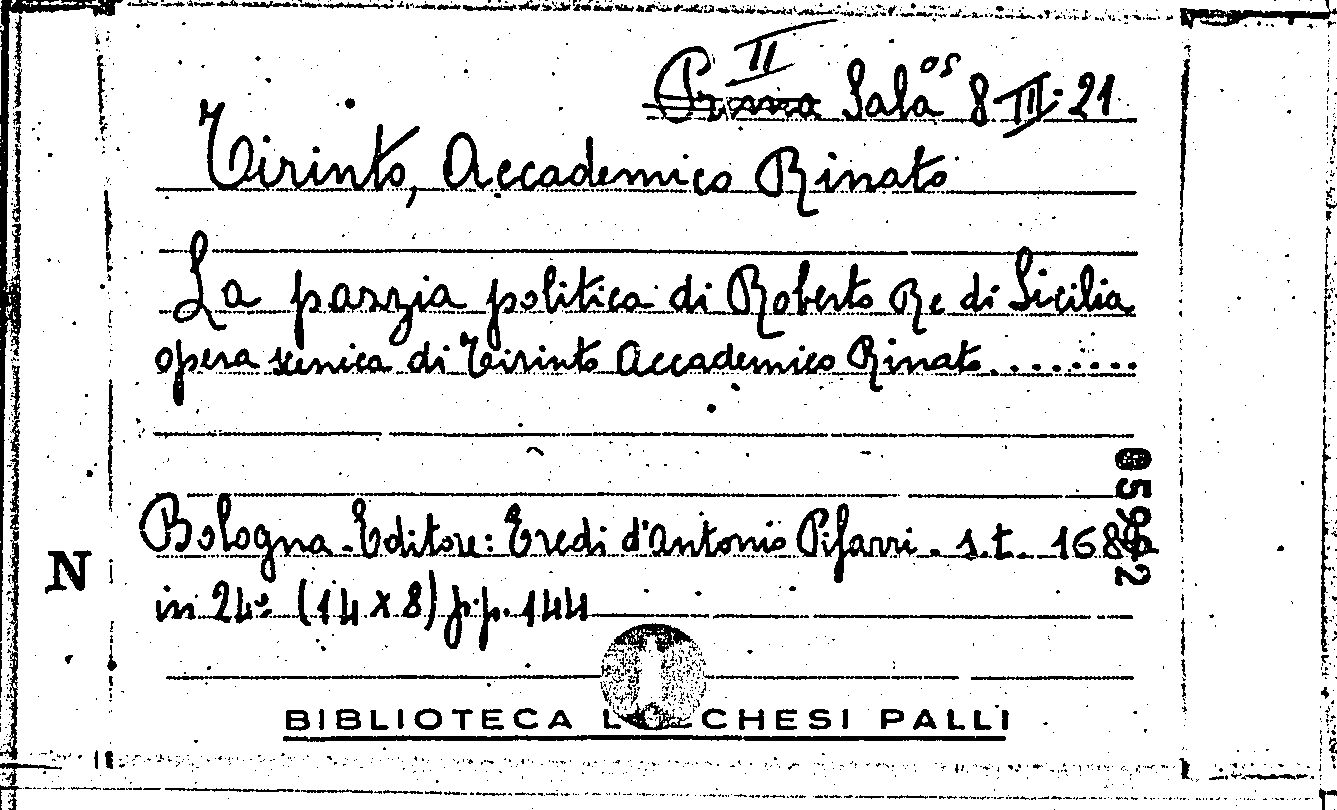 II
Prima Sala os 8-III-21
Tirinto, Accademico Rinato
La pazzia politica di Roberto Re di Sicilia
opera scenica di Tirinto Accademico Rinato........
Bologna-Editore: Eredi d'Antonio Pifarri. s.t. 
in 24º (14 x 8) p.p. 144
N
BIBLIOTECA L CHESI PALLI